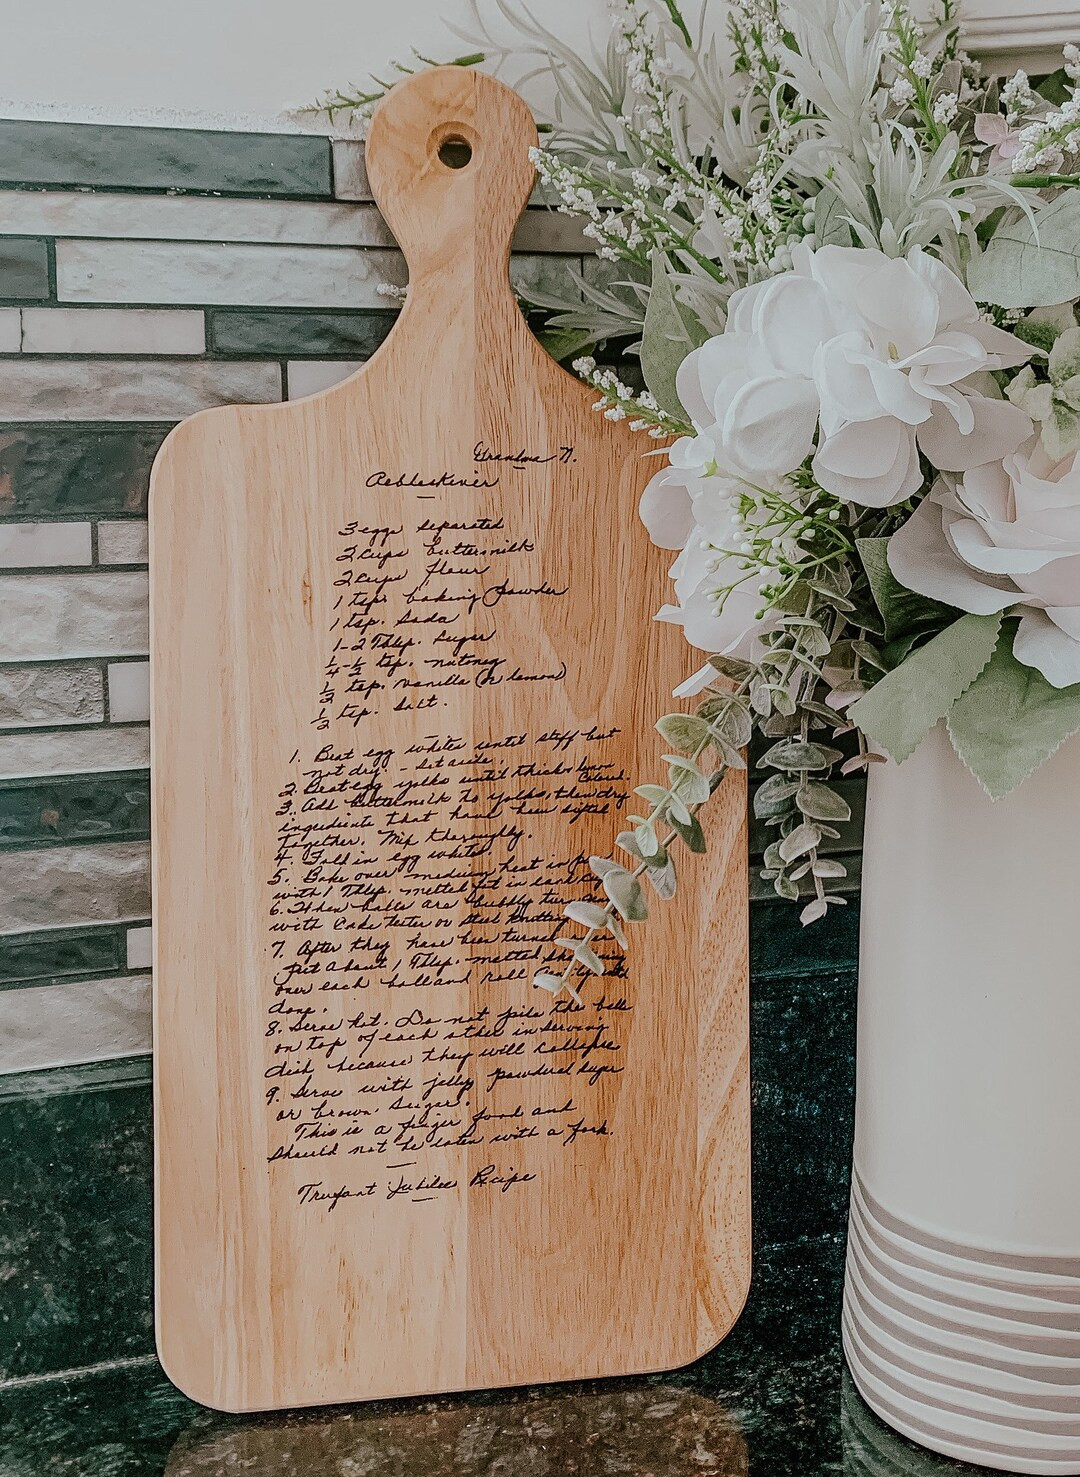 Grandma N.
Aebleskiver
3 eggs separated
2 cups buttermilk
2 cups flour
1 tsp. baking powder
1 tsp. Soda
1-2 Tblsp. sugar
1/4-1/2 tsp. nutmeg
1/2 tsp. vanilla (or lemon)
1/2 tsp. salt.
1. Beat egg whites until stiff but
not dry. - set aside.
2. Beat egg yolks until thick & lemon
colored.
3. Add buttermilk to yolks, then dry
ingredients that have been sifted
together. Mix thoroughly.
4. Fold in egg whites.
5. Bake over medium heat in
with 1 Tblsp. melted fat in each
6. When balls are bubbly turn
with Cake tester or steel knitting
7. After they have been turned over
put about 1 Tblsp. melted shortening
over each ball and roll until
done.
8. Serve hot. Do not pile the balls
on top of each other in serving
dish because they will collapse
9. Serve with jelly, powdered sugar
or brown sugar.
This is a finger food and
should not be eaten with a fork.
Trufant Jubilee Recipe